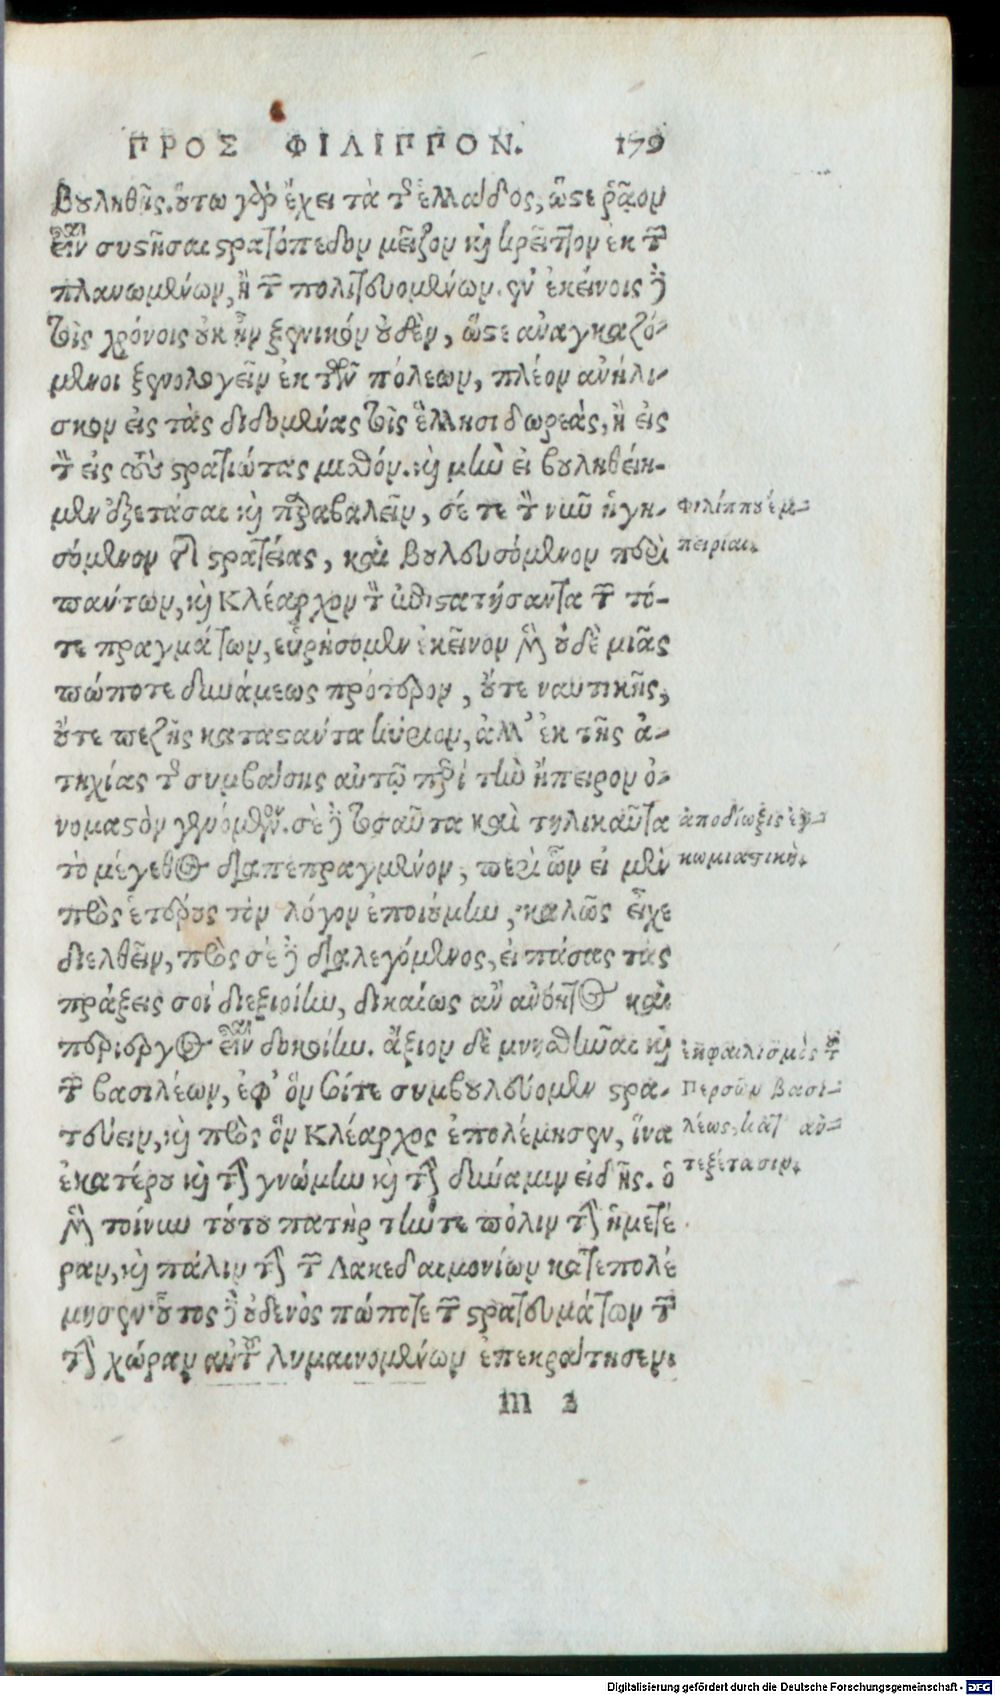 ΠΡΟΣ ΦΙΛΙΠΠΟΝ. 179
βουληθῇς. οὕτω γὰρ ἔχει τὰ τῆς ἑλλάδος, ὥστε ῥᾷον
εἶναι συστῆσαι στρατόπεδον μεῖζον καὶ κρεῖττον ἐκ τῶν
πλανωμένων, ἢ τῶν πολιτευομένων. ἐν ἐκείνοις δὲ
τοῖς χρόνοις οὐκ ἦν ξενικὸν οὐδὲν, ὥστε ἀναγκαζό-
μενοι ξενολογεῖν ἐκ τῶν πόλεων, πλέον ἀνήλι-
σκον εἰς τὰς διδομένας τοῖς ἕλλησι δωρεὰς, ἢ εἰς
τὸν εἰς τοὺς στρατιώτας μισθόν. καὶ μὴν εἰ βουληθείη-
μεν ἐξετάσαι καὶ παραβαλεῖν, σέ τε τὸν νῦν ἡγη-
σόμενον τῆς στρατείας, καὶ βουλευσόμενον περὶ
πάντων, καὶ Κλέαρχον τὸν ἐπιστατήσαντα τῶν τό-
τε πραγμάτων, εὑρήσομεν ἐκεῖνον μὲν οὐδὲ μιᾶς
πώποτε δυνάμεως πρότερον, οὔτε ναυτικῆς,
οὔτε πεζῆς καταστάντα κύριον, ἀλλ' ἐκ τῆς ἀ-
τυχίας τῆς συμβάσης αὐτῷ περὶ τὴν ἤπειρον ὀ-
νομαστὸν γενόμενον. σὲ δὲ τοσαῦτα καὶ τηλικαῦτα
τὸ μέγεθος διαπεπραγμένον, περὶ ὧν εἰ μὲν
πρὸς ἑτέρους τὸν λόγον ἐποιούμην, καλῶς εἶχε
διελθεῖν, πρὸς σὲ δὲ διαλεγόμενος, εἰ πάσας τὰς
πράξεις σοι διεξιοίην, δικαίως ἂν ἀνόητος καὶ
περίεργος εἶναι δοκοίην. ἄξιον δὲ μνησθῆναι καὶ
τῶν βασιλέων, ἐφ' ὅν σοί τε συμβουλεύομεν στρα-
τεύειν, καὶ πρὸς ὃν Κλέαρχος ἐπολέμησεν, ἵνα
ἑκατέρου καὶ τὴν γνώμην καὶ τὴν δύναμιν εἰδῇς. ὁ
μὲν τοίνυν τούτου πατὴρ τήν τε πόλιν τὴν ἡμετέ
ραν, καὶ πάλιν τὴν τῶν Λακεδαιμονίων κατεπολέ
μησεν· οὗτος δὲ οὐδενὸς πώποτε τῶν στρατευμάτων τῶν
τὴν χώραν αὐτοῦ λυμαινομένων ἐπεκράτησεν.
m 2
Φιλίππου ἐμ-
πειρίαι.
ἀποδίωξις ἐγ-
κωμιαστικὴ.
ἐκφαυλισμὸς τοῦ
Περσῶν βασι-
λέως, κατ' ἀν-
τεξέτασιν.
Digitalisierung gefördert durch die Deutsche Forschungsgemeinschaft - DFG